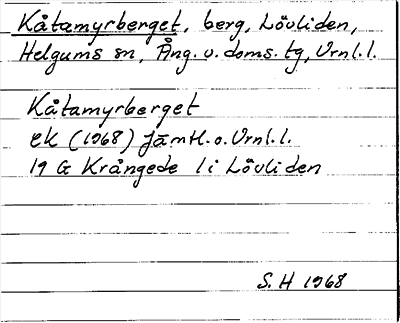 Kåtamyrberget, berg, Lövliden,
Helgums sn, Ång. v. doms. tg, Vrnl. l.
Kåtamyrberget
ek (1968) Jämtl. o. Vrnl. l.
19 G Krångede 1 i Lövliden
S. H 1968